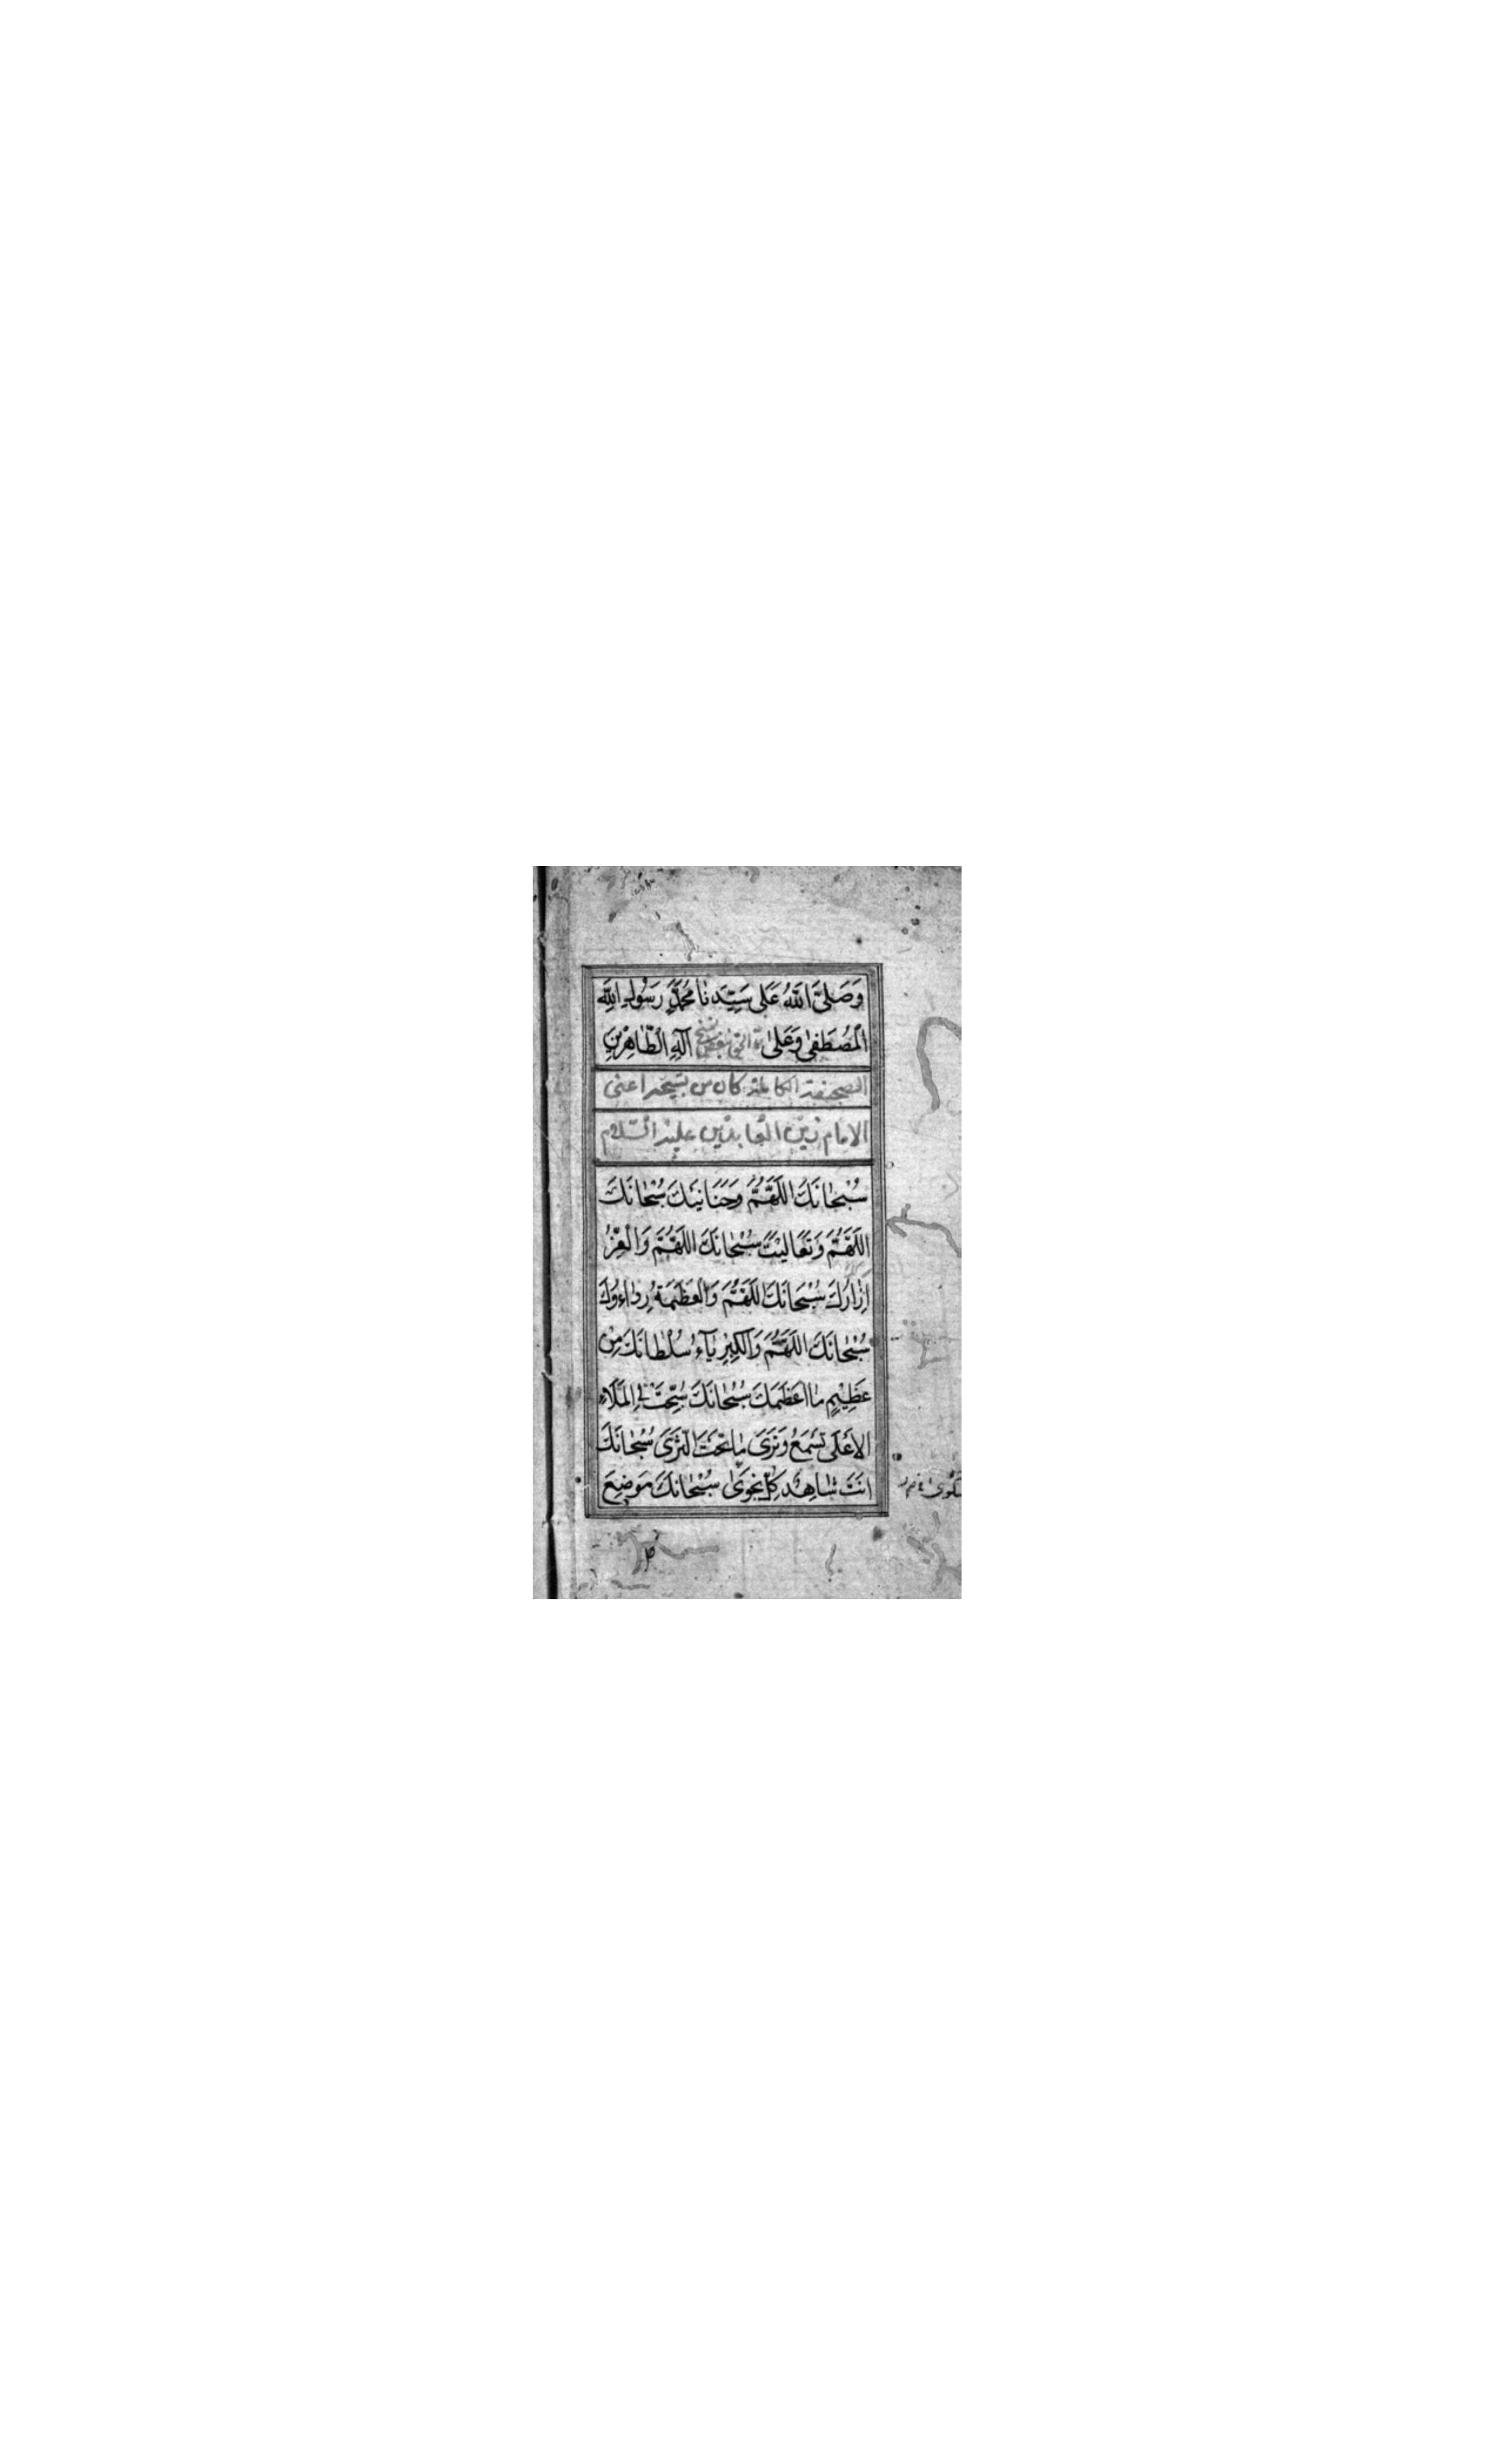 وَصَلَّى اللّٰهُ عَلٰى سَيِّدِنٰا مُحَمَّدٍ رَسُولِ اللّٰهِ
الْمُصْطَفٰى وَعَلٰى آلِهِ الطّٰاهِرِينَ
الصحيفة الكاملة كان من تسبيحه اعنى
الامام زين العابدين عليه السلام
سُبْحٰانَكَ اللّٰهُمَّ وَحَنَانَيْكَ سُبْحٰانَكَ
اللّٰهُمَّ وَتَعَالَيْتَ سُبْحٰانَكَ اللّٰهُمَّ وَالْعِزُّ
اِزٰارُكَ سُبْحَانَكَ اللّٰهُمَّ وَالْعَظَمَةُ رِدٰاءُوكَ
سُبْحٰانَكَ اللّٰهُمَّ وَالْكِبْرِيٰآءُ سُلْطٰانُكَ مِنْ
عَظِيْمٍ مٰا اَعْظَمَكَ سُبْحٰانَكَ سُبِّحْتَ فِي الْمَلَاءِ
الْاَعْلَى تَسْمَعُ وَتَرَى مٰا تَحْتَ الثَّرَى سُبْحٰانَكَ
اَنْتَ شٰاهِدُ كُلِّ نَجْوَىٰ سُبْحٰانَكَ مَوْضِعَ